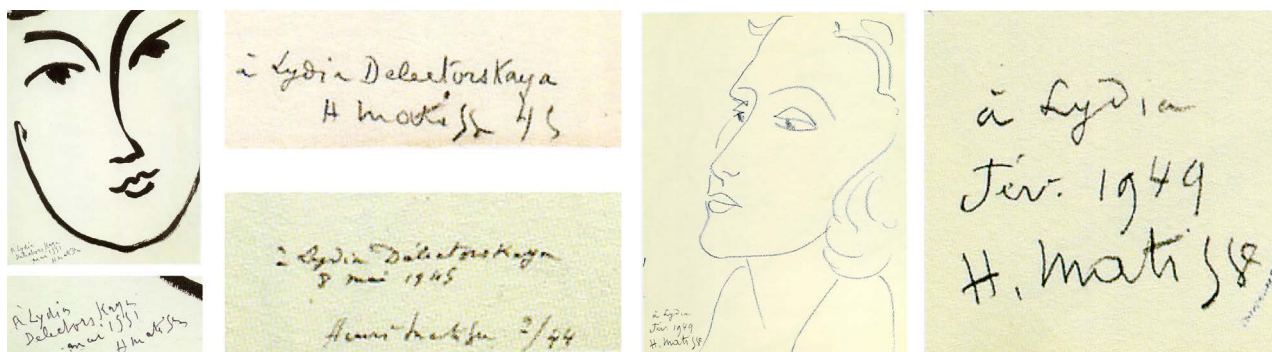 À Lydia
Delectorskaya
mai 1951
H Matisse
À Lydia
Delectorskaya
mai 1951
H Matisse
à Lydia Delectorskaya
H Matisse 45
à Lydia Délectorskaya
8 mai 1945
Henri Matisse 2/44
à Lydia
Fév. 1949
H. Matisse
à Lydia
Fév. 1949
H. Matisse